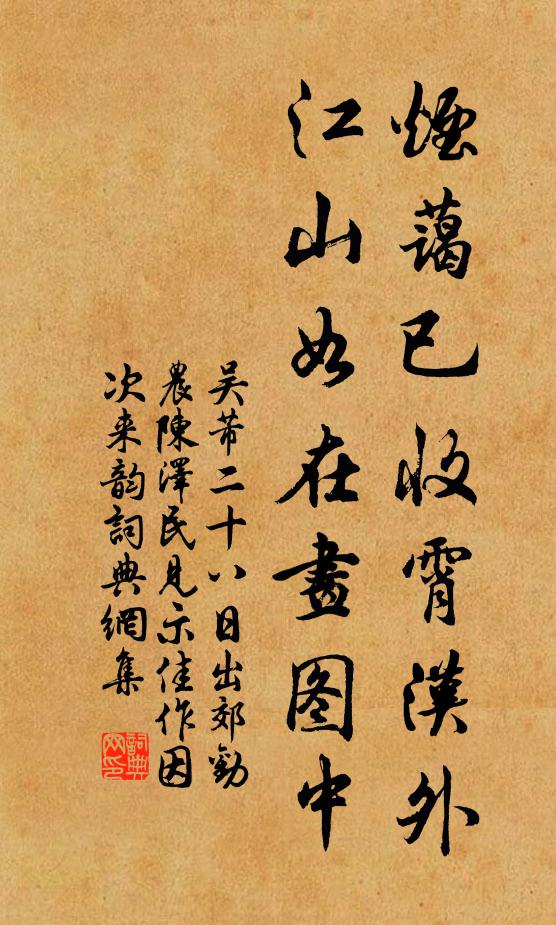 煙藹已收霄漢外
江山如在畫图中
吴芾二十八日出郊勸
農陳澤民見示佳作因
次来韵詞典網集
詞典
网印